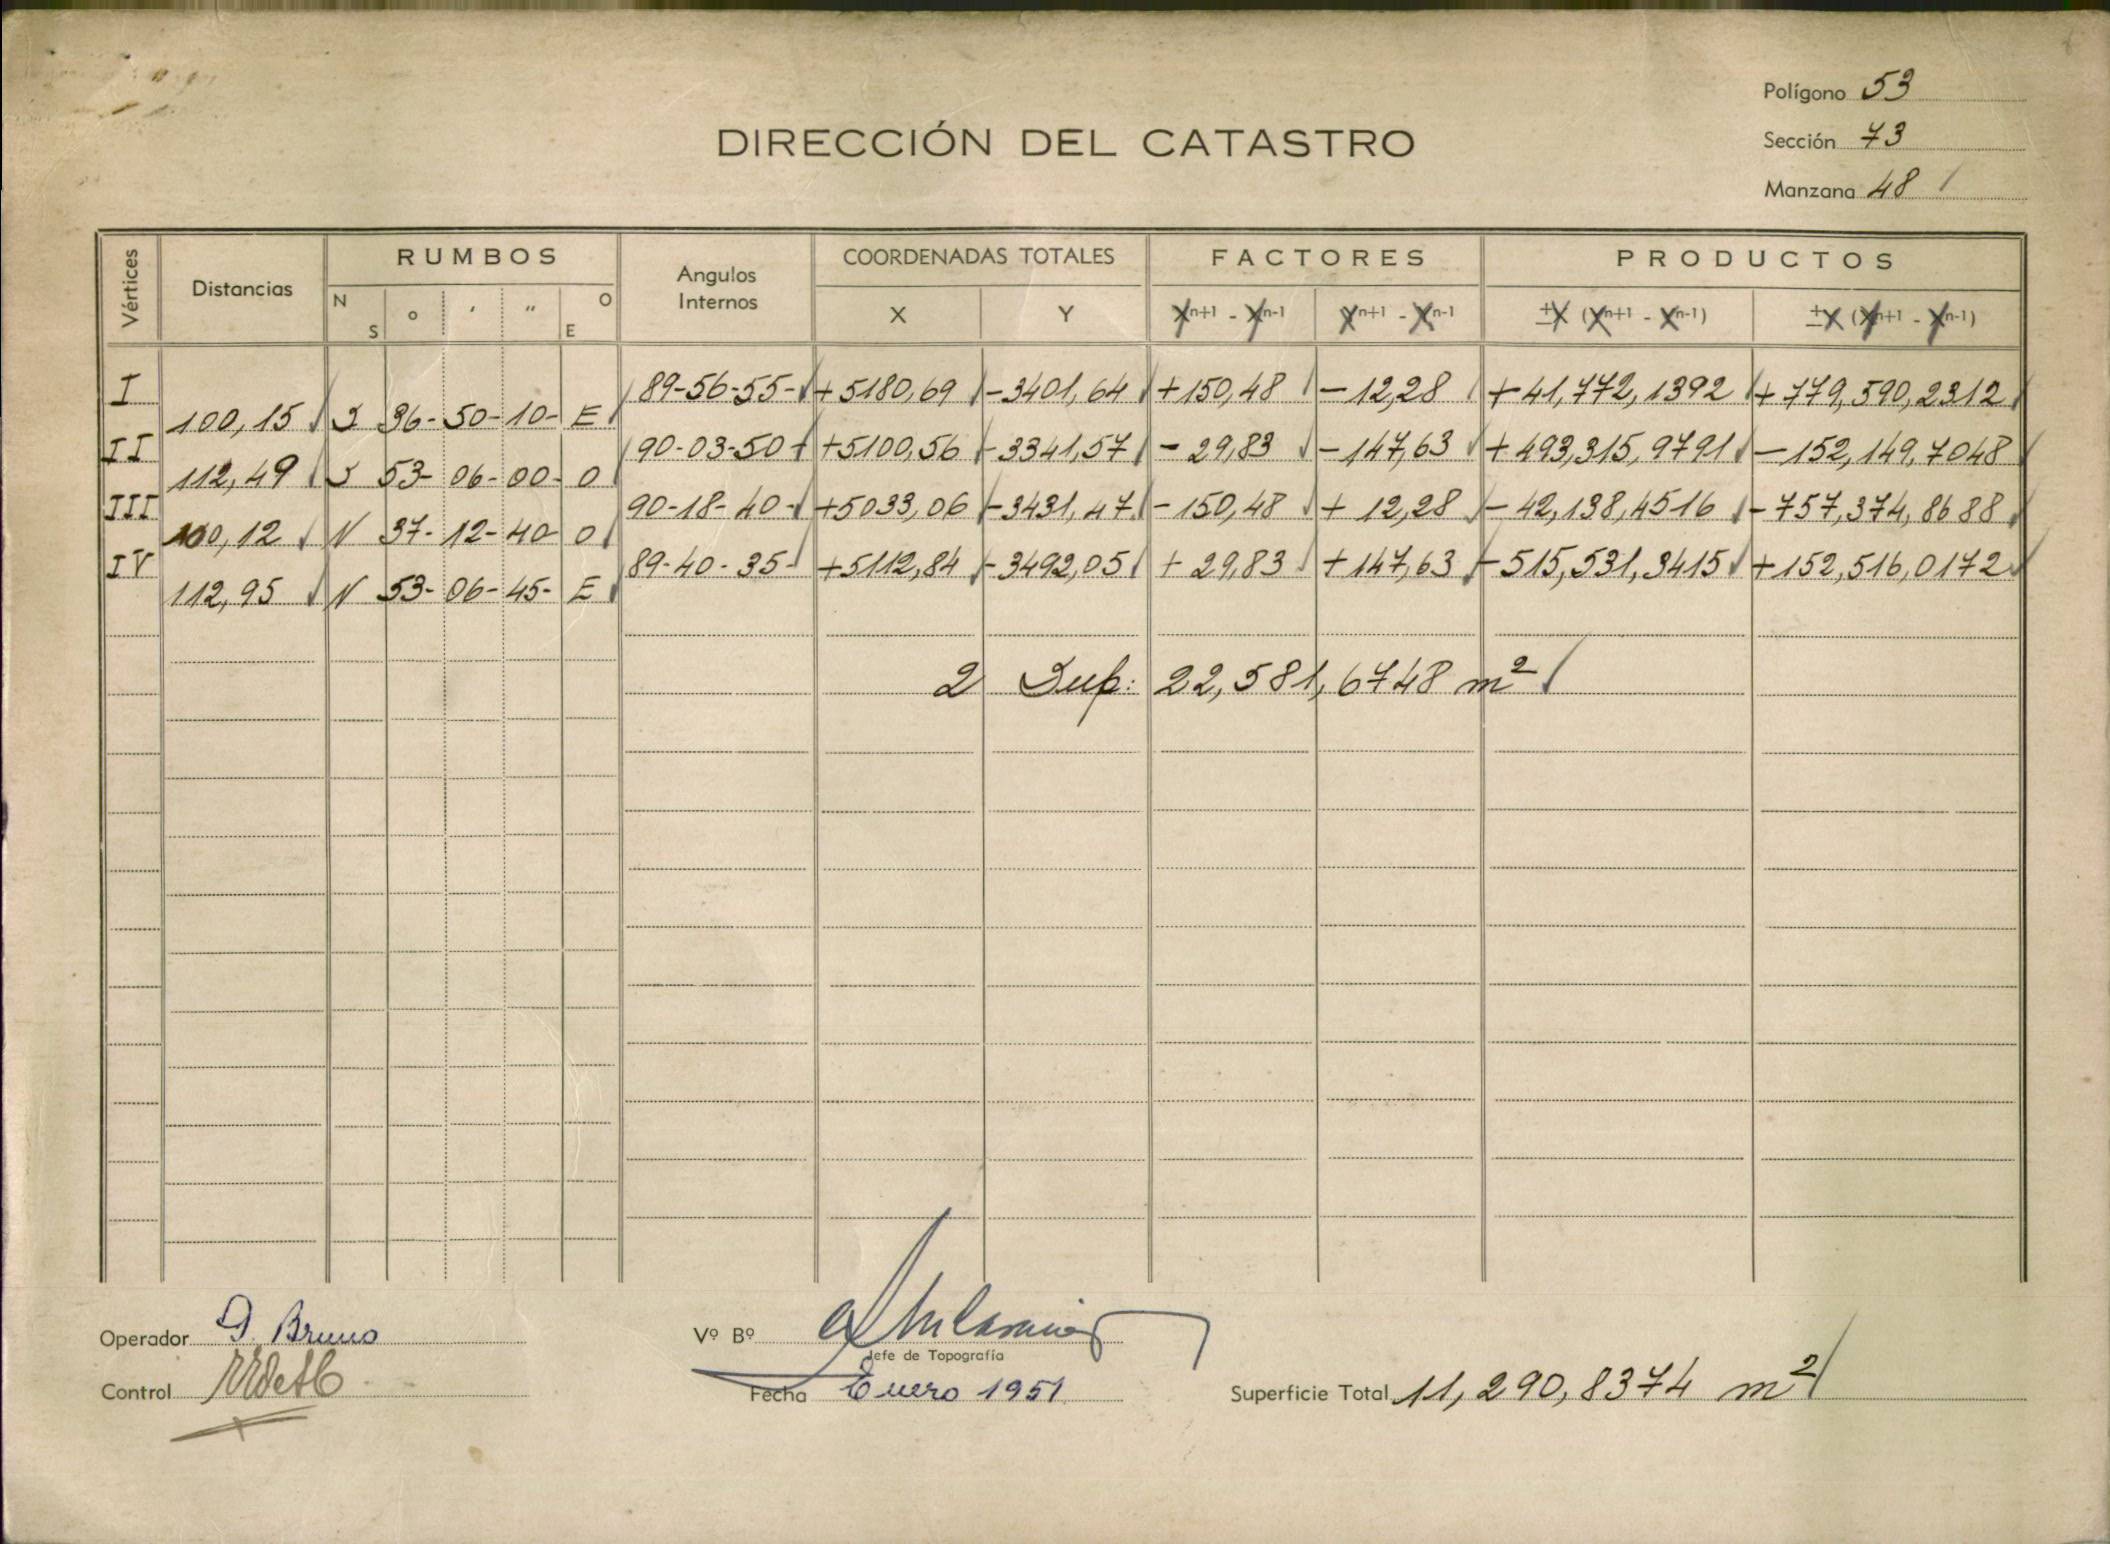 Polígono 53
DIRECCIÓN DEL CATASTRO
Sección 73
Manzana 48
Vértices Distancias RUMBOS Angulos Internos COORDENADAS TOTALES FACTORES PRODUCTOS
N S ° ' " E O X Y Xn+1 - Xn-1 Xn+1 - Xn-1 ±X (Xn+1 - Xn-1) ±X (Xn+1 - Xn-1)
I 89-56-55- +5180,69 -3401,64 +150,48 -12,28 +41,772,1392 +779,590,2312
100,15 S 36-50-10- E
II 90-03-50- +5100,56 -3341,57 -29,83 -147,63 +493,315,9791 -152,149,7048
112,49 S 53-06-00- O
III 90-18-40- +5033,06 -3431,47 -150,48 +12,28 -42,138,4516 -757,374,8688
100,12 N 37-12-40- O
IV 89-40-35- +5112,84 -3492,05 +29,83 +147,63 -515,531,3415 +152,516,0172
112,95 N 53-06-45- E
2 Sup: 22,581,6748 m²
Operador D. Bruno
Vº Bº
Jefe de Topografía
Control
Fecha Enero 1951
Superficie Total 11,290,8374 m²